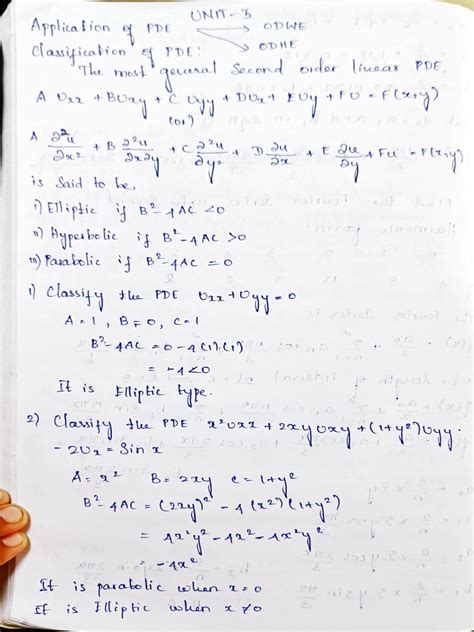 UNIT-3
Application of PDE → ODWE
→ ODHE
Classification of PDE:
The most general Second order linear PDE.
A Uxx + BUxy + C Uyy + DUx + EUy + FU = F(x,y)
(or)
A ∂²u/∂x² + B ∂²u/∂x∂y + C ∂²u/∂y² + D ∂u/∂x + E ∂u/∂y + Fu = F(x,y)
is Said to be,
i) Elliptic if B²-4AC <0
ii) Hyperbolic if B²-4AC >0
iii) Parabolic if B²-4AC = 0
1) Classify the PDE Uxx + Uyy = 0
A=1, B=0, C=1
B²-4AC = 0-4(1)(1)
= -4<0
It is Elliptic type.
2) Classify the PDE x²Uxx + 2xyUxy + (1+y²)Uyy
-2Ux = Sin x
A= x² B= 2xy C= 1+y²
B²-4AC = (2xy)² - 4(x²)(1+y²)
= 4x²y² - 4x² - 4x²y²
= -4x²
It is parabolic when x=0
It is Elliptic when x≠0